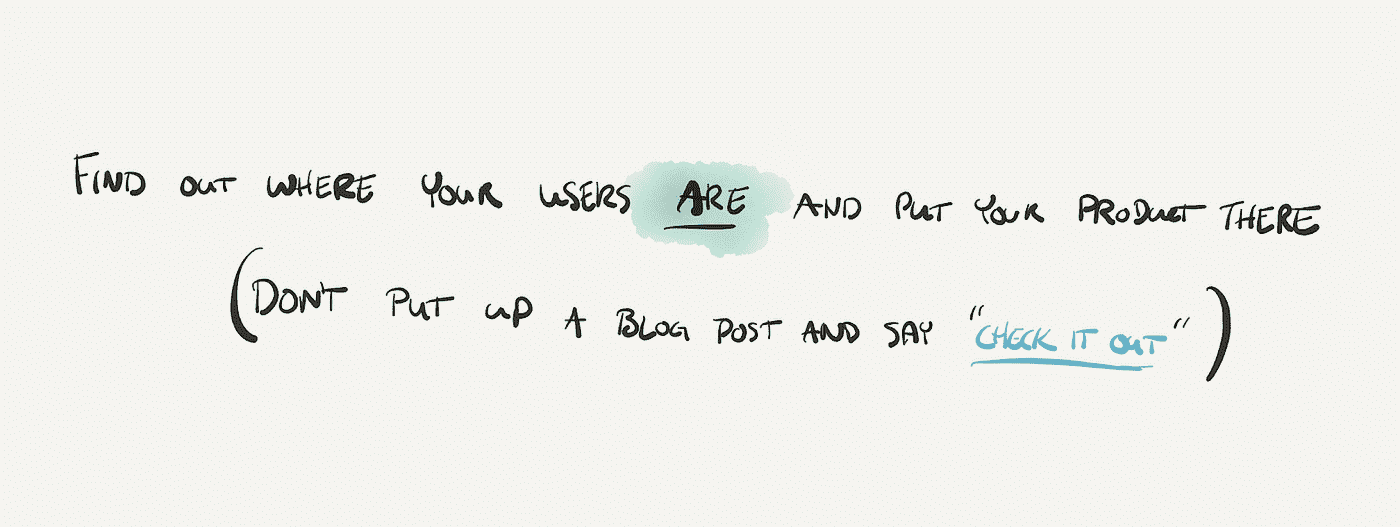 FIND OUT WHERE YOUR USERS ARE AND PUT YOUR PRODUCT THERE
(DON'T PUT UP A BLOG POST AND SAY "CHECK IT OUT")